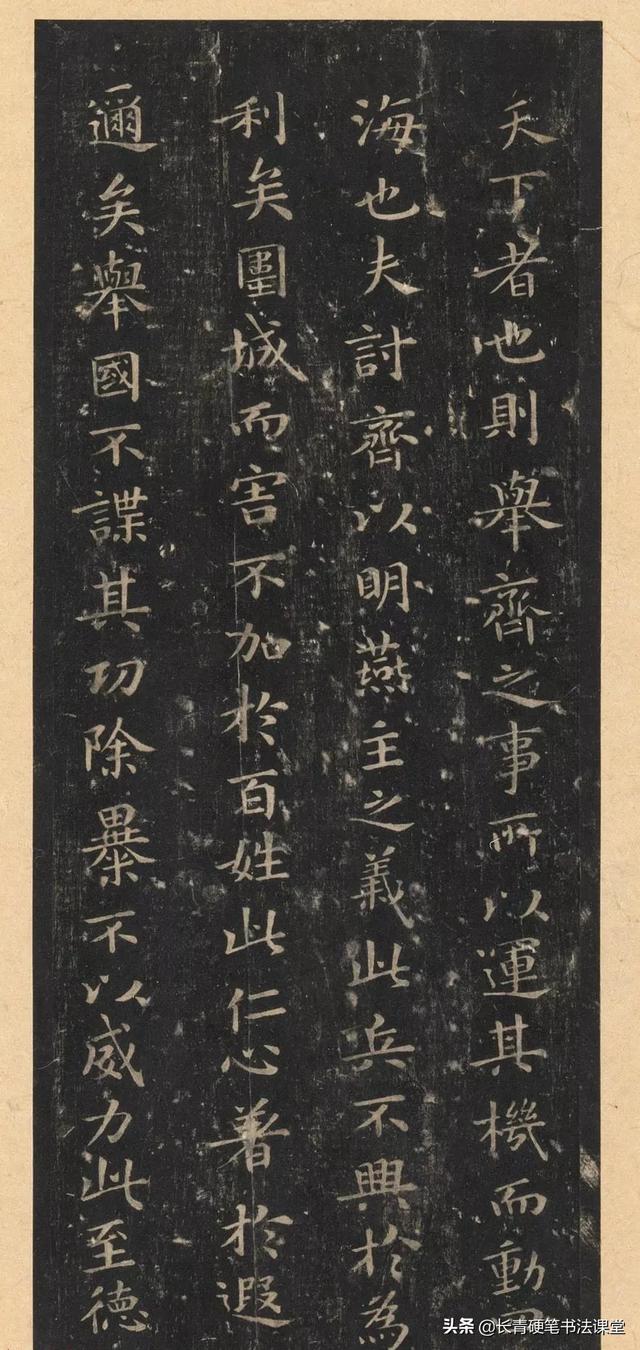 天下者也則舉齊之事所以運其機而動四
海也夫討齊以明燕主之義此兵不興於為
利矣圍城而害不加於百姓此仁心著於遐
邇矣舉國不謀其功除暴不以威力此至德
头条 @长青硬笔书法课堂